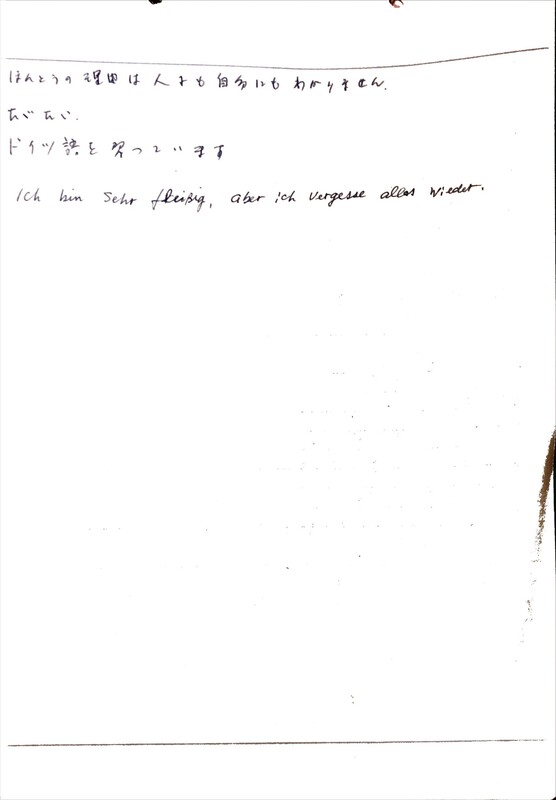 ほんとうの理由は人にも自分にもわかりません.
ドイツ語を習っています
Ich bin sehr fleißig, aber ich vergesse alles wieder.